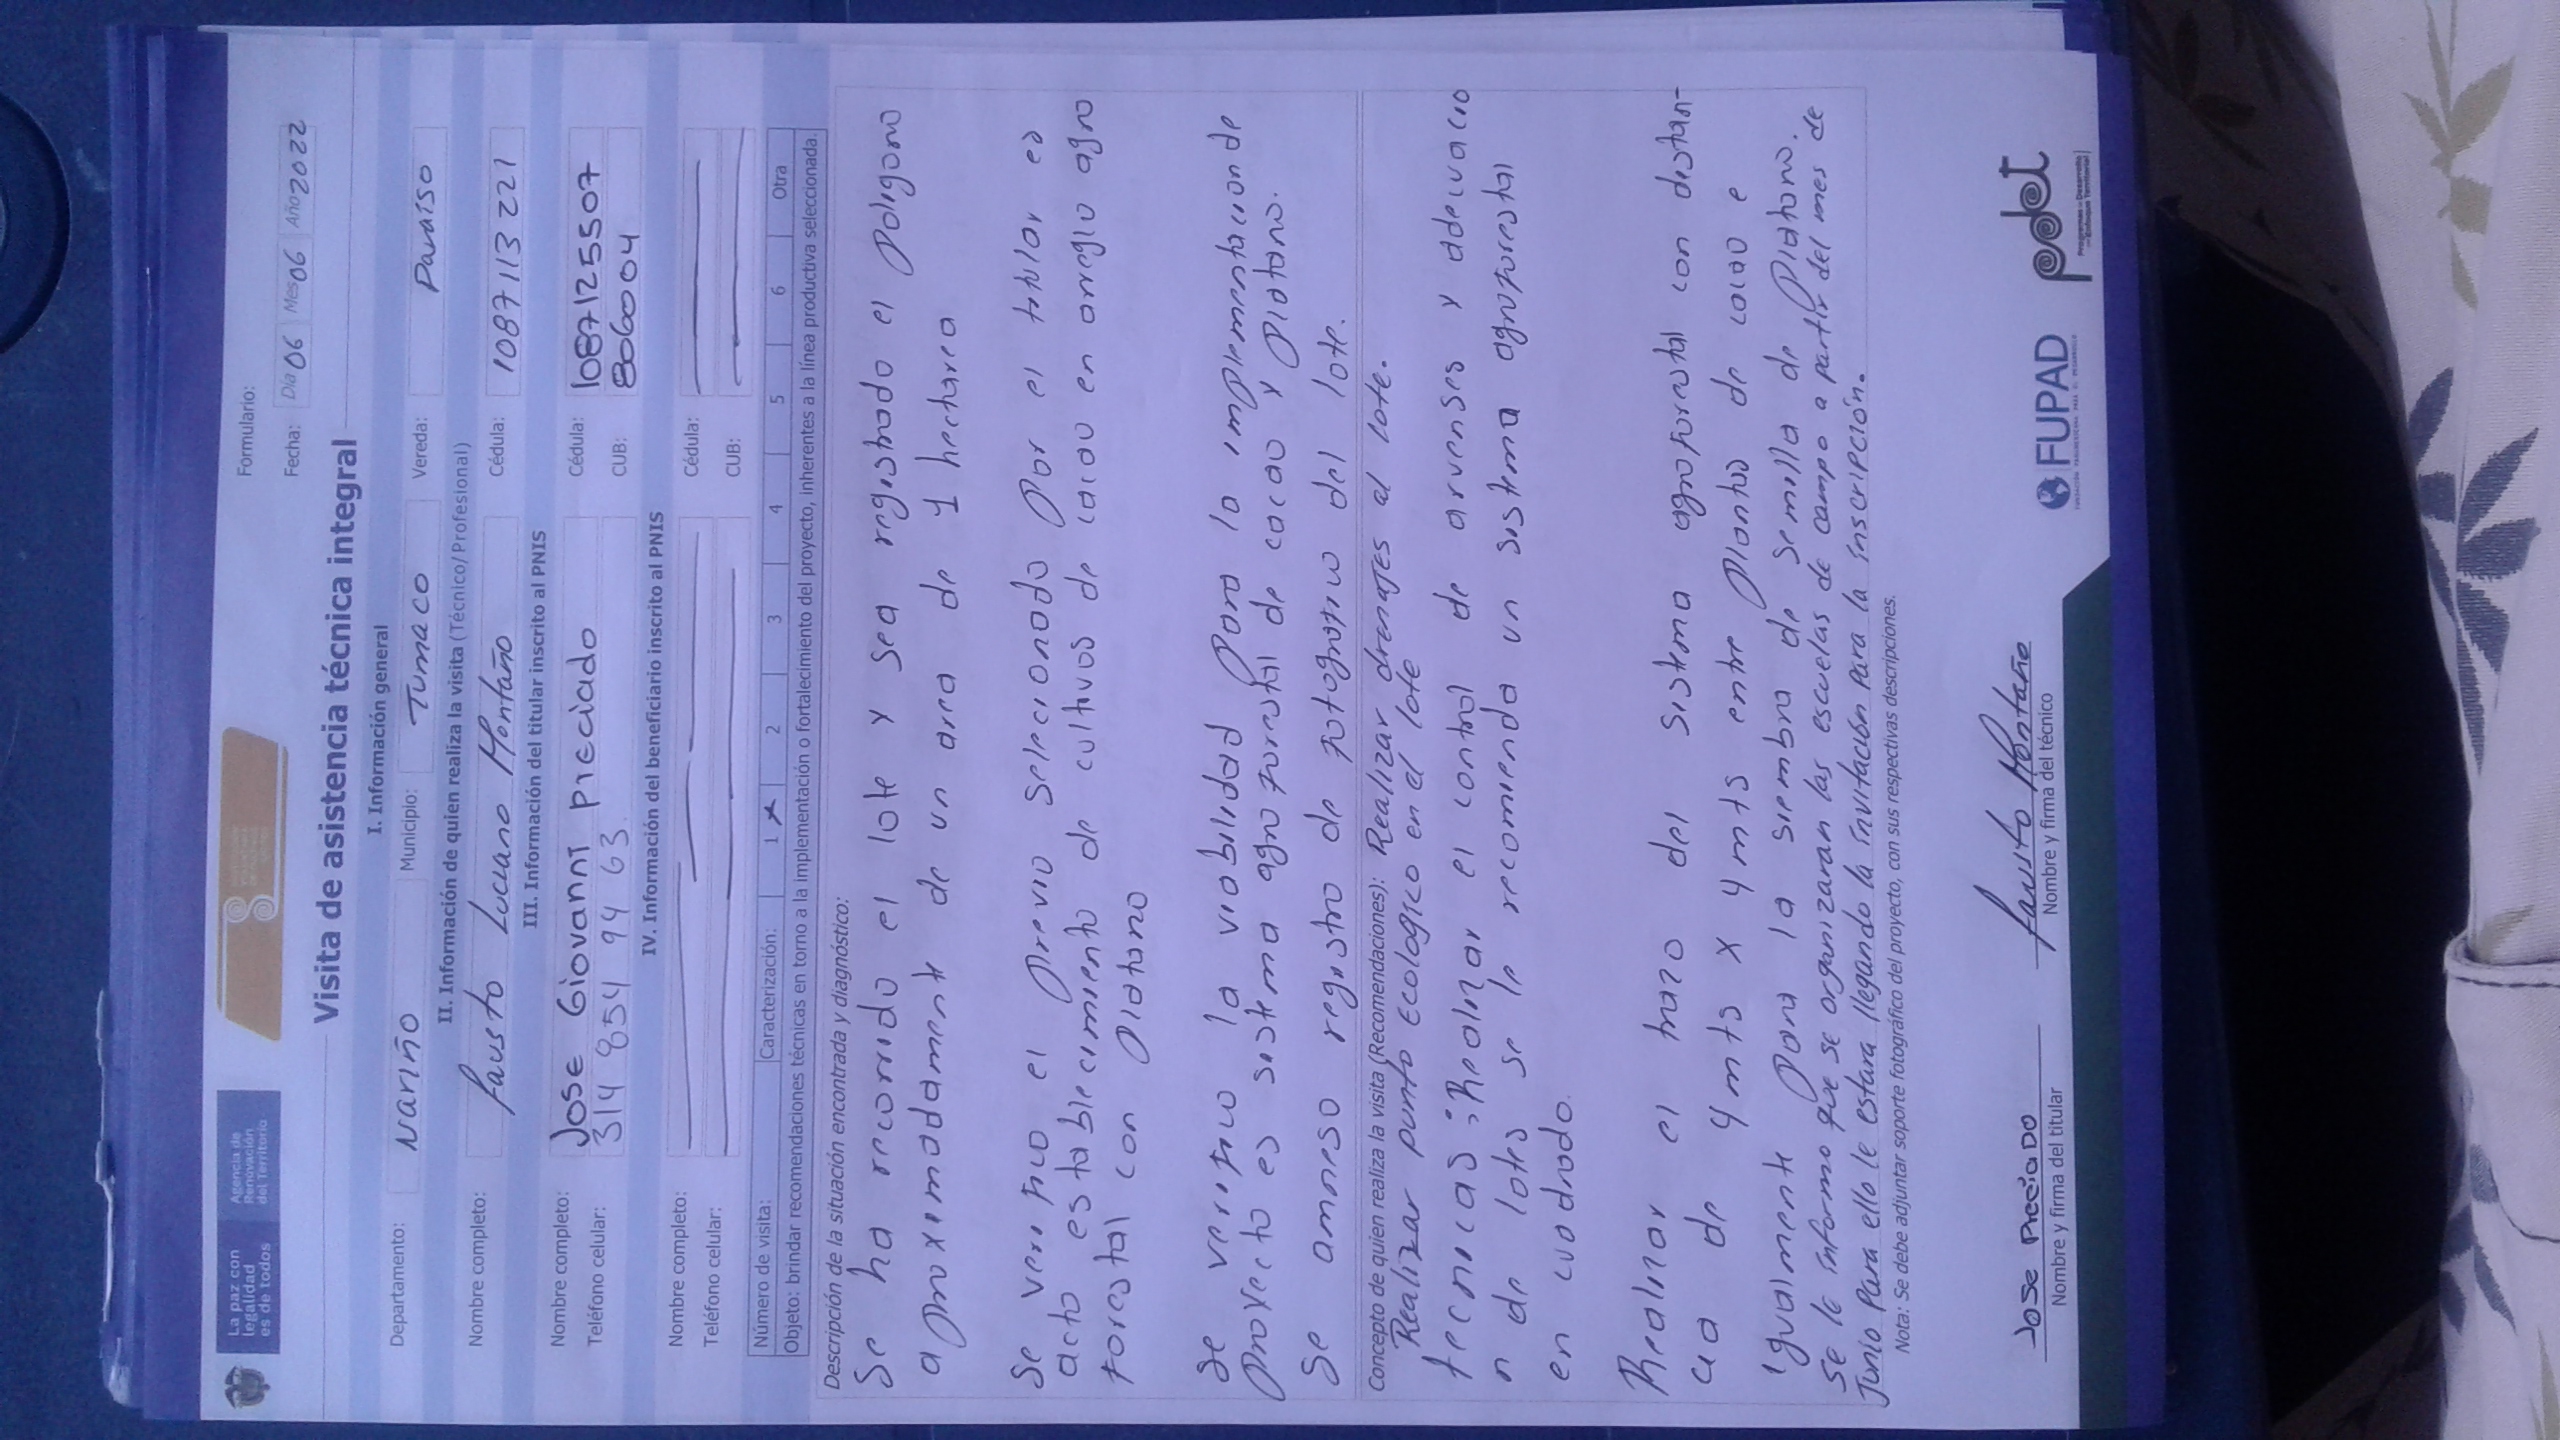 La paz con
legalidad
es de todos
Agencia de
Renovación
del Territorio
Formulario:
Fecha: Día 06 Mes 06 Año 2022
Visita de asistencia técnica integral
I. Información general
Departamento: Nariño Municipio: Tumaco Vereda: Paraíso
II. Información de quien realiza la visita (Técnico/Profesional)
Nombre completo: Fausto Lucano Montaño Cédula: 1087113221
III. Información del titular inscrito al PNIS
Nombre completo: Jose Giovanni Preciado Cédula: 1087125507
Teléfono celular: 314 854 94 63 CUB: 806004
IV. Información del beneficiario inscrito al PNIS
Nombre completo: Cédula:
Teléfono celular: CUB:
Número de visita: Caracterización: 1 x 2 3 4 5 6 Otra
Objeto: brindar recomendaciones técnicas en torno a la implementación o fortalecimiento del proyecto, inherentes a la línea productiva seleccionada.
Descripción de la situación encontrada y diagnóstico:
Se ha recorrido el lote y sea registrado el poligono
aproximadamente de un area de 1 hectarea
Se verifico el previo seleccionado por el titular es
acto establecimiento de cultivos de cacao en arreglo agro
forestal con platano
Se verifico la viabilidad para la implementacion de
proyecto es sistema agro forestal de cacao y platano.
Se anneso registro de fotografico del lote.
Concepto de quien realiza la visita (Recomendaciones): Realizar drenajes al lote.
Realizar punto ecologico en el lote
tecnicas: Realizar el control de arvenses y adecuacio
n de lotes se le recomienda un sistema agroforestal
en cuadrado.
Realizar el trazo del sistema agroforestal con distan-
cia de 4 mts x 4 mts entre plantas de cacao e
igualmente para la siembra de semilla de platano.
Se le informo que se organizaran las escuelas de campo a partir del mes de
Junio para ello le estara llegando la invitación para la inscripción.
Nota: Se debe adjuntar soporte fotográfico del proyecto, con sus respectivas descripciones.
Jose Preciado
Nombre y firma del titular
Fausto Montaño
Nombre y firma del técnico
FUPAD
pdet
Programas de Desarrollo
con Enfoque Territorial